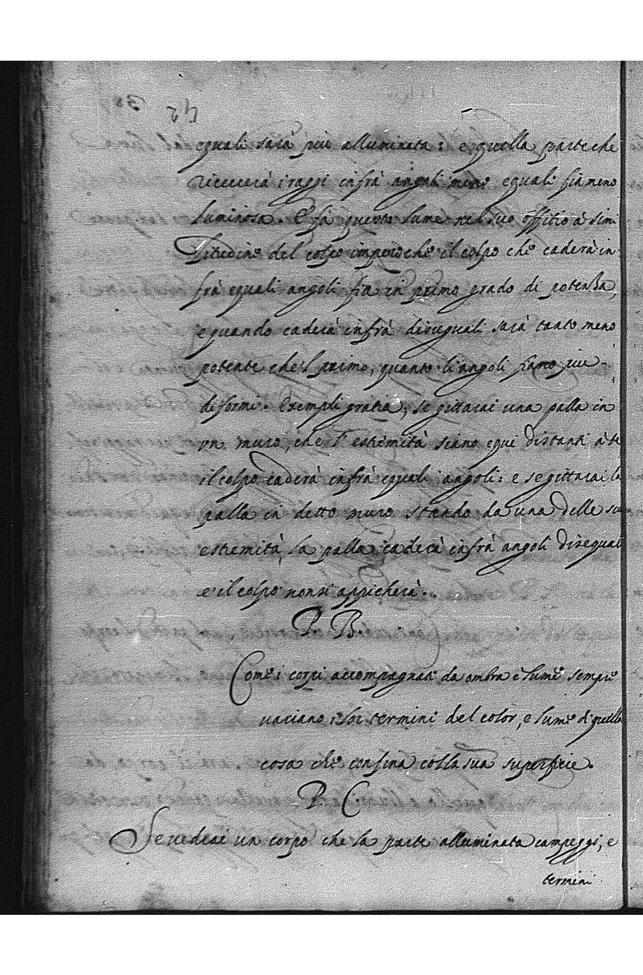 42
equali sarà più alluminata: e quella parte che
riceverà i raggi infrà angoli meno equali fia meno
luminosa. E fà questo lume nel suo offitio à simi
litudine del colpo imperoche il colpo che caderà in
frà equali angoli fia in primo grado di potenza,
e quando caderà infrà disequali sarà tanto meno
potente che'l primo, quanto li angoli siano più
diformi. Exempli gratia, se gittarai una palla in
vn muro, che l'estremità siano eque distanti à te
il colpo caderà infrà equali angoli: e se gittarai la
palla in detto muro stando da una delle su
estremità, la palla caderà infrà angoli disequali
e il colpo non si appicherà.
P. B.
Come i corpi accompagnati da ombra e lume sempre
variano i lor termini del color, e lume di quella
cosa che confina colla sua superficie.
P. C.
Se vedrai un corpo che la parte alluminata campeggi, e
termini